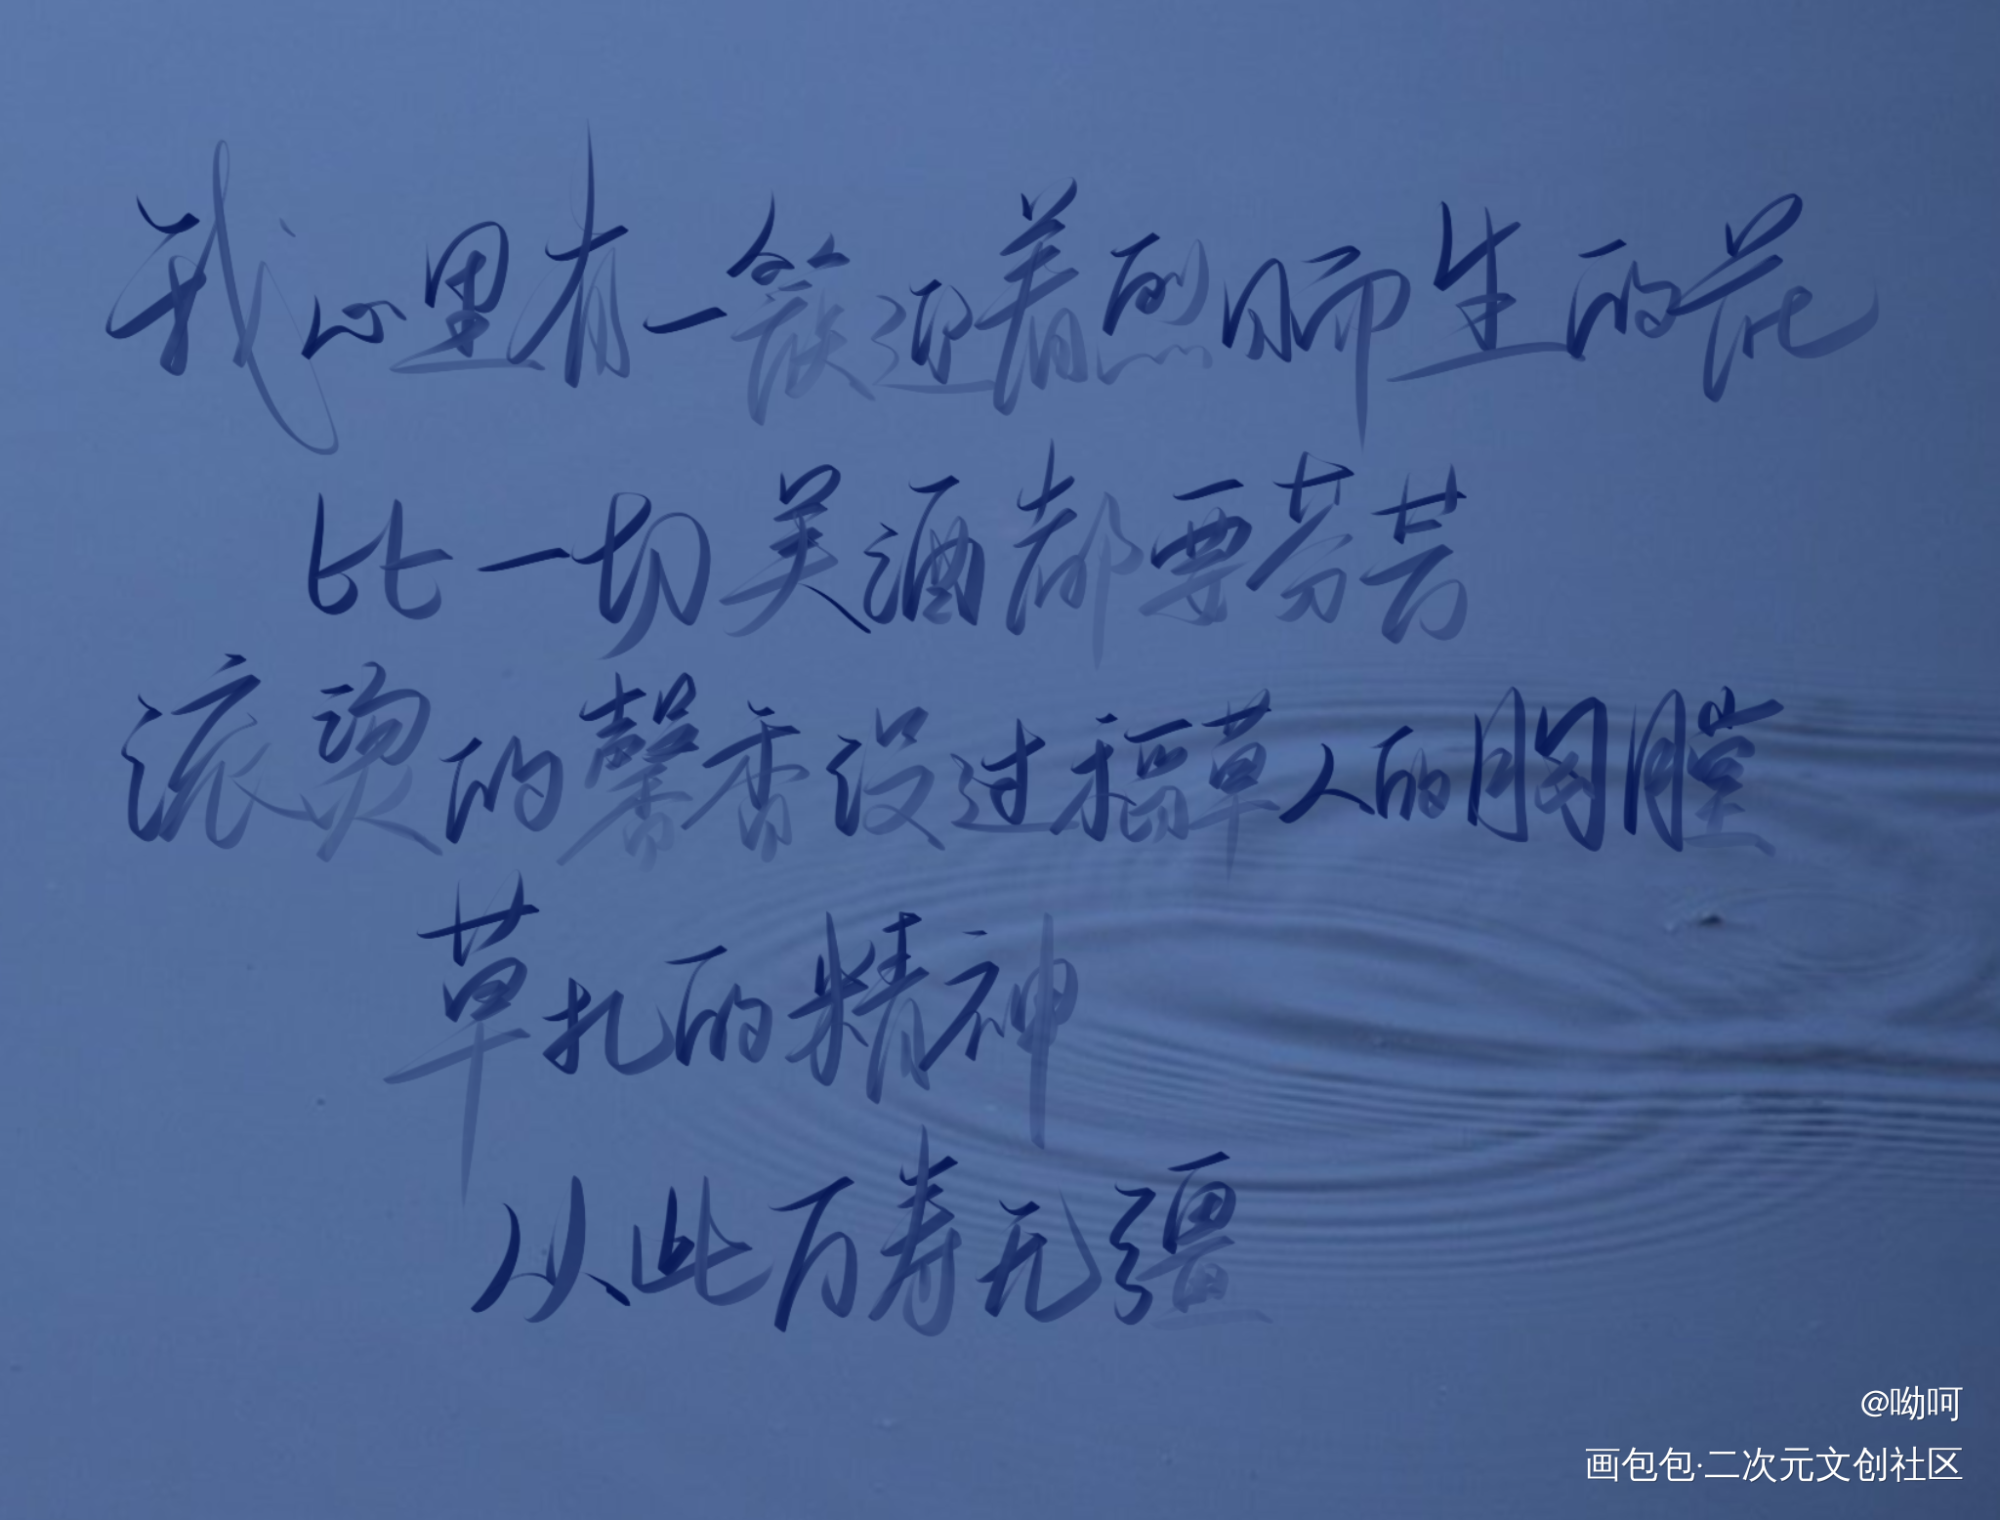 我心里有一簇迎着烈日而生的花
比一切美酒都要芬芳
滚烫的馨香没过稻草人的胸膛
草扎的精神
从此万寿无疆
@呦呵
画包包·二次元文创社区